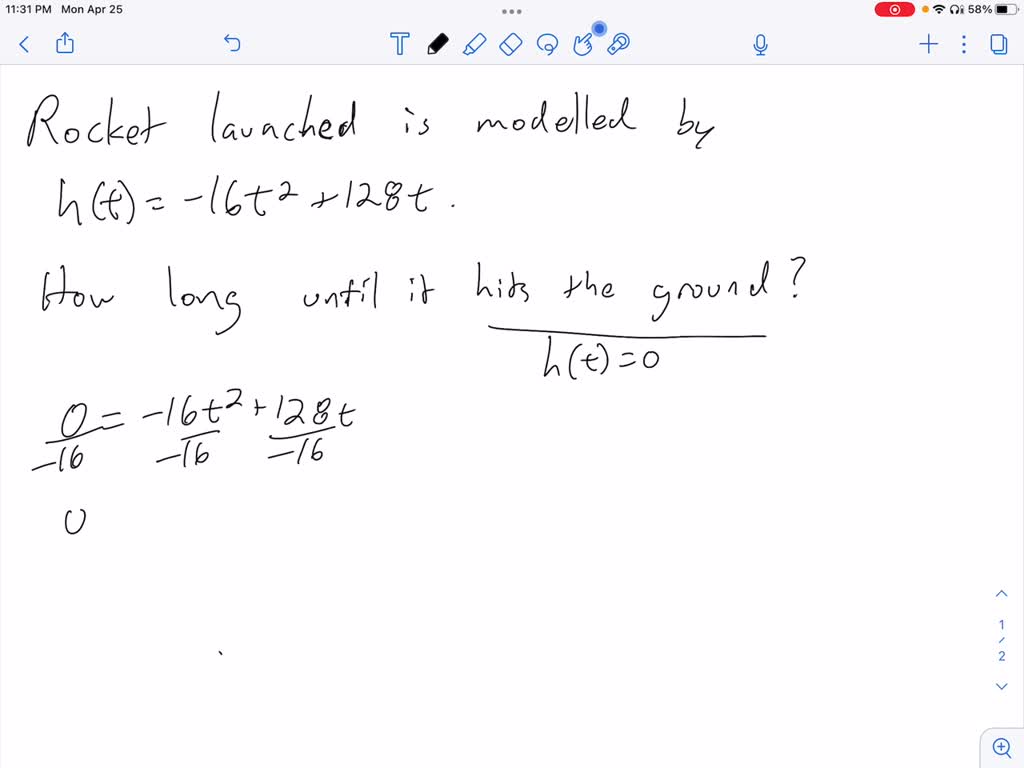 11:31 PM Mon Apr 25 58%
T
Rocket launched is modelled by
h(t) = -16t² + 128t.
How long until it hits the ground?
h(t) = 0
0 = -16t² + 128t
-16 -16 -16
0
1
/
2